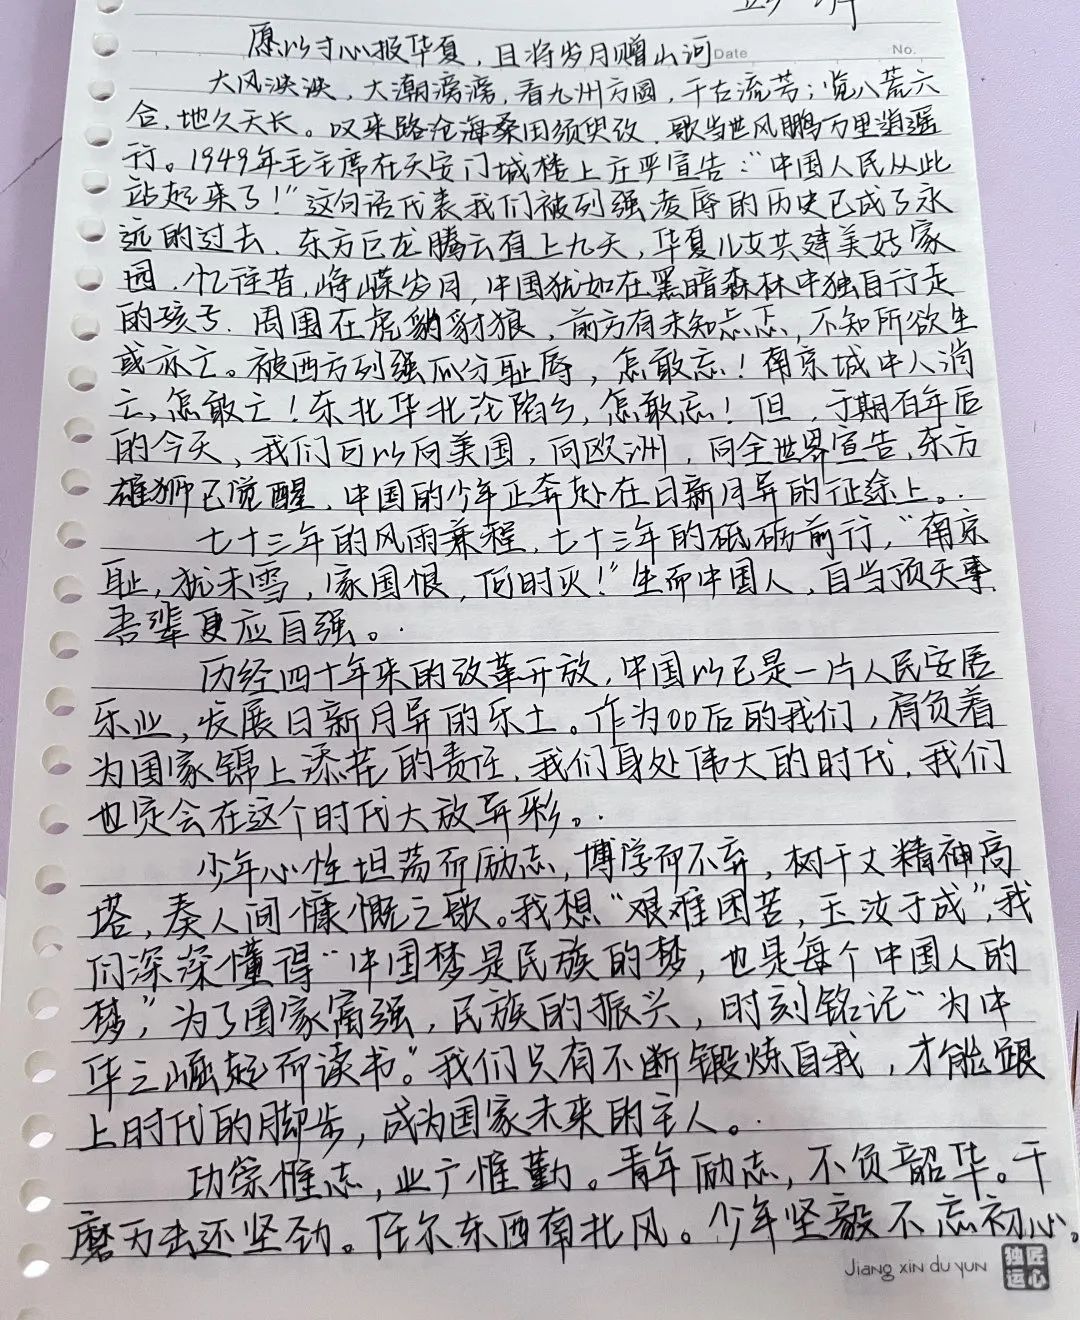 愿以寸心报华夏，且将岁月赠山河
Date
No.
大风泱泱，大潮滂滂，看九州方圆，千古流芳；览八荒六
合，地久天长。叹来路沧海桑田须臾改，歌当世风鹏万里逍遥
行。1949年毛主席在天安门城楼上庄严宣告：“中国人民从此
站起来了！”这句话代表我们被列强凌辱的历史已成了永
远的过去，东方巨龙腾云直上九天，华夏儿女共建美好家
园，忆往昔，峥嵘岁月，中国犹如在黑暗森林中独自行走
的孩子，周围在虎豹豺狼，前方有未知忐忑，不知所欲生
或亦亡。被西方列强瓜分耻辱，怎敢忘！南京城中人消
亡，怎敢亡！东北华北沦陷乡，怎敢忘！但，于期百年后
的今天，我们可以向美国，向欧洲，向全世界宣告，东方
雄狮已觉醒，中国的少年正奔赴在日新月异的征途上。
七十三年的风雨兼程，七十三年的砥砺前行，“南京
耻，犹未雪，家国恨，何时灭！”生而中国人，自当顶天事
吾辈更应自强。
历经四十年来的改革开放，中国以已是一片人民安居
乐业，发展日新月异的乐土。作为00后的我们，肩负着
为国家锦上添花的责任，我们身处伟大的时代，我们
也定会在这个时代大放异彩。
少年心性坦荡而励志，博学而不弃，树千丈精神高
塔，奏人间慷慨之歌。我想“艰难困苦，玉汝于成”，我
们深深懂得“中国梦是民族的梦，也是每个中国人的
梦”，为了国家富强，民族的振兴，时刻铭记“为中
华之崛起而读书”。我们只有不断锻炼自我，才能跟
上时代的脚步，成为国家未来的主人。
功崇惟志，业广惟勤。青年励志，不负韶华。千
磨万击还坚劲。任尔东西南北风。少年坚毅不忘初心。
Jiang xin du yun
独匠
运心